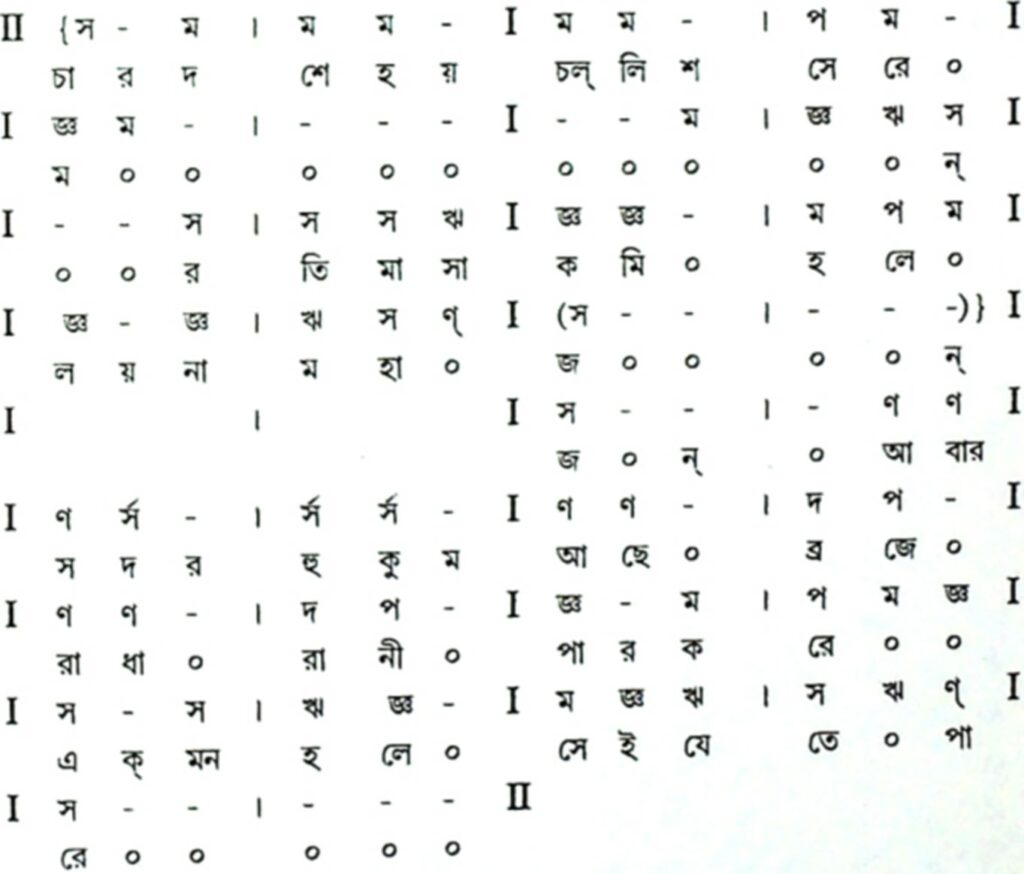 II {স - ম । ম ম - I ম ম - । প ম - I
চা র দ শে হ য় চল্ লি শ সে রে ০
I জ্ঞ ম - । - - - I - - ম । জ্ঞ ঋ স I
ম ০ ০ ০ ০ ০ ০ ০ ০ ০ ০ ন্
I - - স । স স ঋ I জ্ঞ জ্ঞ - । ম প ম I
০ ০ র তি মা সা ক মি ০ হ লে ০
I জ্ঞ - জ্ঞ । ঋ স ণ্ I (স - - । - - -)} I
ল য় না ম হা ০ জ ০ ০ ০ ০ ন্
I । I স - - । - ণ ণ I
জ ০ ন্ ০ আ বার
I ণ র্স - । র্স র্স - I ণ ণ - । দ প - I
স দ র হু কু ম আ ছে ০ ব্র জে ০
I ণ ণ - । দ প - I জ্ঞ - ম । প ম জ্ঞ I
রা ধা ০ রা নী ০ পা র ক রে ০ ০
I স - স । ঋ জ্ঞ - I ম জ্ঞ ঋ । স ঋ ণ্ I
এ ক্ মন হ লে ০ সে ই যে তে ০ পা
I স - - । - - - II
রে ০ ০ ০ ০ ০